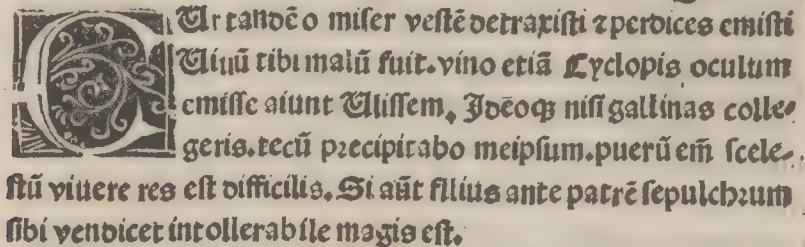 CUr tandē o miser vestē detraxisti ⁊ perdices emisti
Uiuū tibi malū fuit. vino etiā Cyclopis oculum
emisse aiunt Ulissem, Idēoqꝫ nisi gallinas colle-
geris. tecū precipitabo meipsum. puerū em̄ scele-
stū viuere res est difficilis. Si aūt filius ante patrē sepulchrum
sibi vendicet intollerabile magis est.